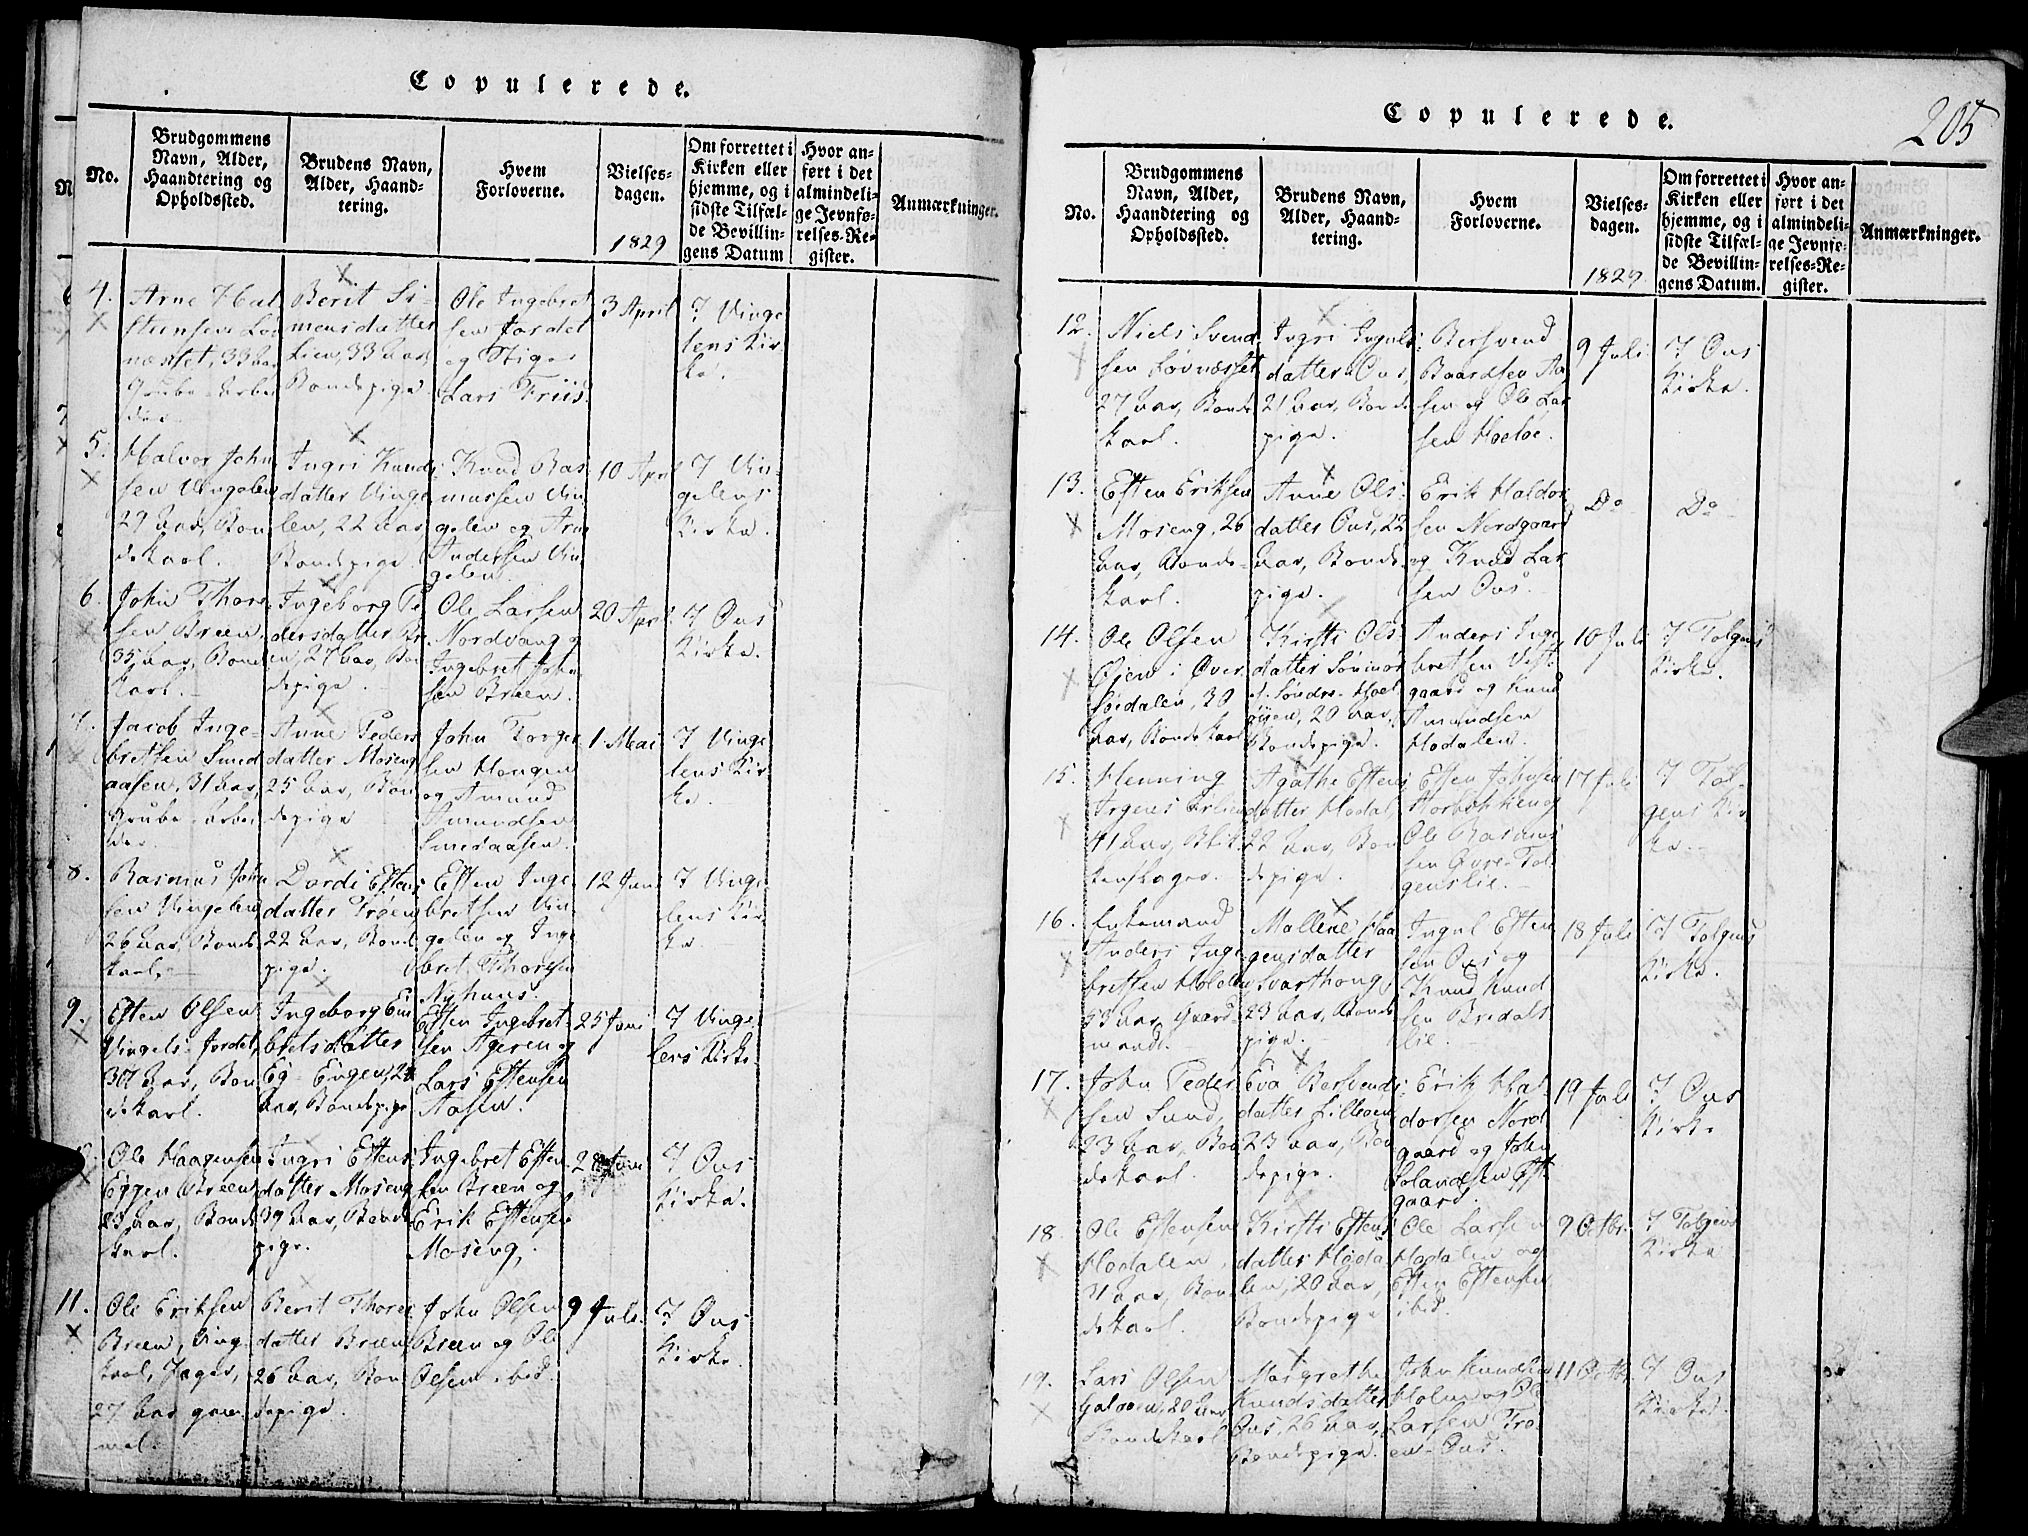 Copulerede.
No.
Brudgommens
Navn, Alder,
Haandtering og
Opholdssted.
Brudens Navn,
Alder, Haand-
tering.
Hvem
Forloverne.
Vielses-
dagen.
1829
Om forrettet i
Kirken eller
hjemme, og i
sidste Tilfæl-
de Bevillin-
gens Datum
Hvor an-
ført i det
almindeli-
ge Jevnfø-
relses-Re-
gister.
Anmærkninger.
4.
Arne Hal
33 Aar
Grube-Arbei
der
Berit Si-
mensdatter
Lien, 33 Aar,
Bondepige
Ole Ingebret
sen Jordet
og Stiger
Lars Friis
3 April
I Vinge
lens Kir
ke.
5.
Halvor John
sen Vingelen
29 Aar, Bon
dekarl.
Ingri Knuds
datter Vinge
len, 22 Aar
Bondepige
Knud Ras
mussen Vin
gelen og Arne
Andersen Vin
gelen.
10 Apr
I Vin-
gelens
Kirke.
6.
John Thore
sen Breen
35 Aar, Bonde
karl.
Ingeborg Pe
dersdatter Bre
en, 27 Aar, Bon
depige.
Ole Larsen
Nordvang og
Ingebret John
sen Breen.
20 Apr
I Ous
Kirke.
7.
Jacob Inge-
bretsen Smed
aasen, 31 Aar,
Grube-Arbei
der.
Anne Peders
datter Moseng
25 Aar, Bon
depige
John Torger
sen Hangen
og Amund
Amundsen
Smedaasen.
1. Mai
I Vinge
lens Kir
ke.
8.
Rasmus John
sen Vingelen
26 Aar, Bonde
karl.
Dordi Estens
datter Trøen
22 Aar, Bonde
pige.
Esten Inge
bretsen Vin
gelen og Inge
bret Thoresen
Nyhuus.
12 Juni
I Vinge
lens Kir
ke.
9.
Esten Olsen
Vingels-Jordet,
Aar, Bon
dekarl.
Ingeborg
bretsdatter
Eg-Engen,
Aar, Bondepige
Esten Ingebret
sen Ageren og
Lars Estensen
Aasen.
25 Juni
I Vinge
lens Kirke.
Ole Haagensen
Eggen Breen
23 Aar, Bonde
karl.
Ingri Estens
datter Moseng
39 Aar, Bonde
pige.
Ingebret Esten
sen Breen og
Erik Estensen
Moseng.
Juni
I Ous
Kirke.
11.
Ole Eriksen
Breen, Ung
karl, Jæger,
27 Aar gam
mel.
Berit Thores
datter Breen
26 Aar, Bon
depige.
John Olsen
Breen og Ole
Olsen ibid.
9 Juli.
I Ous
Kirke.
Copulerede.
205
No.
Brudgommens
Navn, Alder,
Haandtering og
Opholdssted.
Brudens Navn,
Alder, Haand-
tering.
Hvem
Forloverne.
Vielses-
dagen.
1829
Om forrettet i
Kirken eller
hjemme, og i
sidste Tilfæl-
de Bevillin-
gens Datum.
Hvor an-
ført i det
almindeli-
ge Jevnfø-
relses-Re-
gister.
Anmærkninger.
12.
Niels Svend
sen Lovnæsset
27 Aar, Bonde
karl.
Ingri Inguls
datter Ous,
21 Aar, Bonde
pige.
Bersvend
Baardsen Aa
sen og Ole Lar
sen Hoeloe.
9 Juli
I Ous
Kirke.
13.
Esten Eriksen
Moseng, 26
Aar, Bonde-
karl.
Anne Ols
datter Ous, 22
Aar, Bonde
pige.
Erik Haldor
sen Nordgaard
og Knud Lar
sen Ous.
Do
Do
14.
Ole Olsen
Øien i Øver
30
Aar, Bondekarl
Kirsti Ols
datter
20 Aar,
Bondepige.
Anders Inge
bretsen Vest
gaard og Knud
Amundsen
Hodalen.
10 Juli
I Tolgens
Kirke.
15.
Henning
Irgens
41 Aar, Blik
kenslager.
Agathe Estens
datter Hodal,
22 Aar, Bon
depige.
Esten Johnsen
og
Ole Rasmus
sen Øvre-Tol
genslie.
17 Juli
I Tol-
gens Kir
ke.
16.
Enkemand
Anders Inge
bretsen Holden
53 Aar, Gaard
mand.
Mallene Haa
gensdatter
Svarthong,
23 Aar, Bonde
pige.
Ingul Esten
sen Ous og
Knud Knud
sen Bredals
lie.
18 Juli
I Tolgens
Kirke.
17.
John Peder
sen Sund,
23 Aar, Bon
dekarl.
Eva Bersvends
datter Lilleøen
23 Aar, Bon
depige.
Erik Hal-
dorsen Nord
gaard og John
gaard.
19 Juli
I Ous
Kirke
18.
Ole Estensen
Hodalen,
31 Aar, Bon
dekarl.
Kirsti Estens
datter Hoda
len, 20 Aar,
Bondepige
Ole Larsen
Hodalen og
Esten Estensen
ibid.
9 Octbr.
I Tolgens
Kirke
19.
Lars Olsen
Galaaen, 20 Aar,
Bondekarl
Margrethe
Knudsdatter
Ous, 26 Aar,
Bondepige.
John Knudsen
Holm og Ole
Larsen Trø-
en-Ous.
11 Octbr.
I Ous
Kirke.